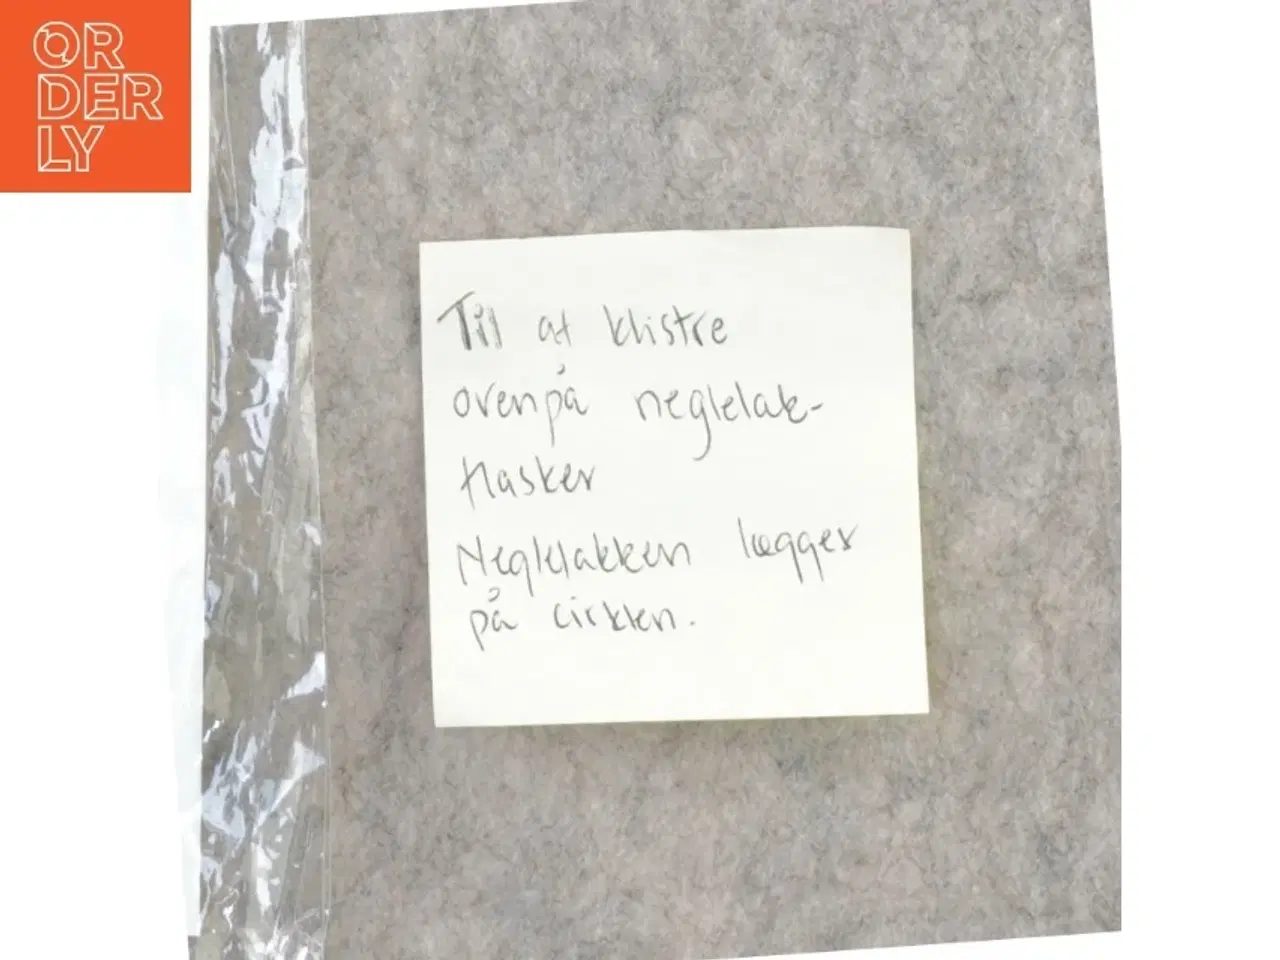 ORDERLY
Til at klistre
ovenpå neglelak-
flasker
Neglelakken lægges
på cirklen.